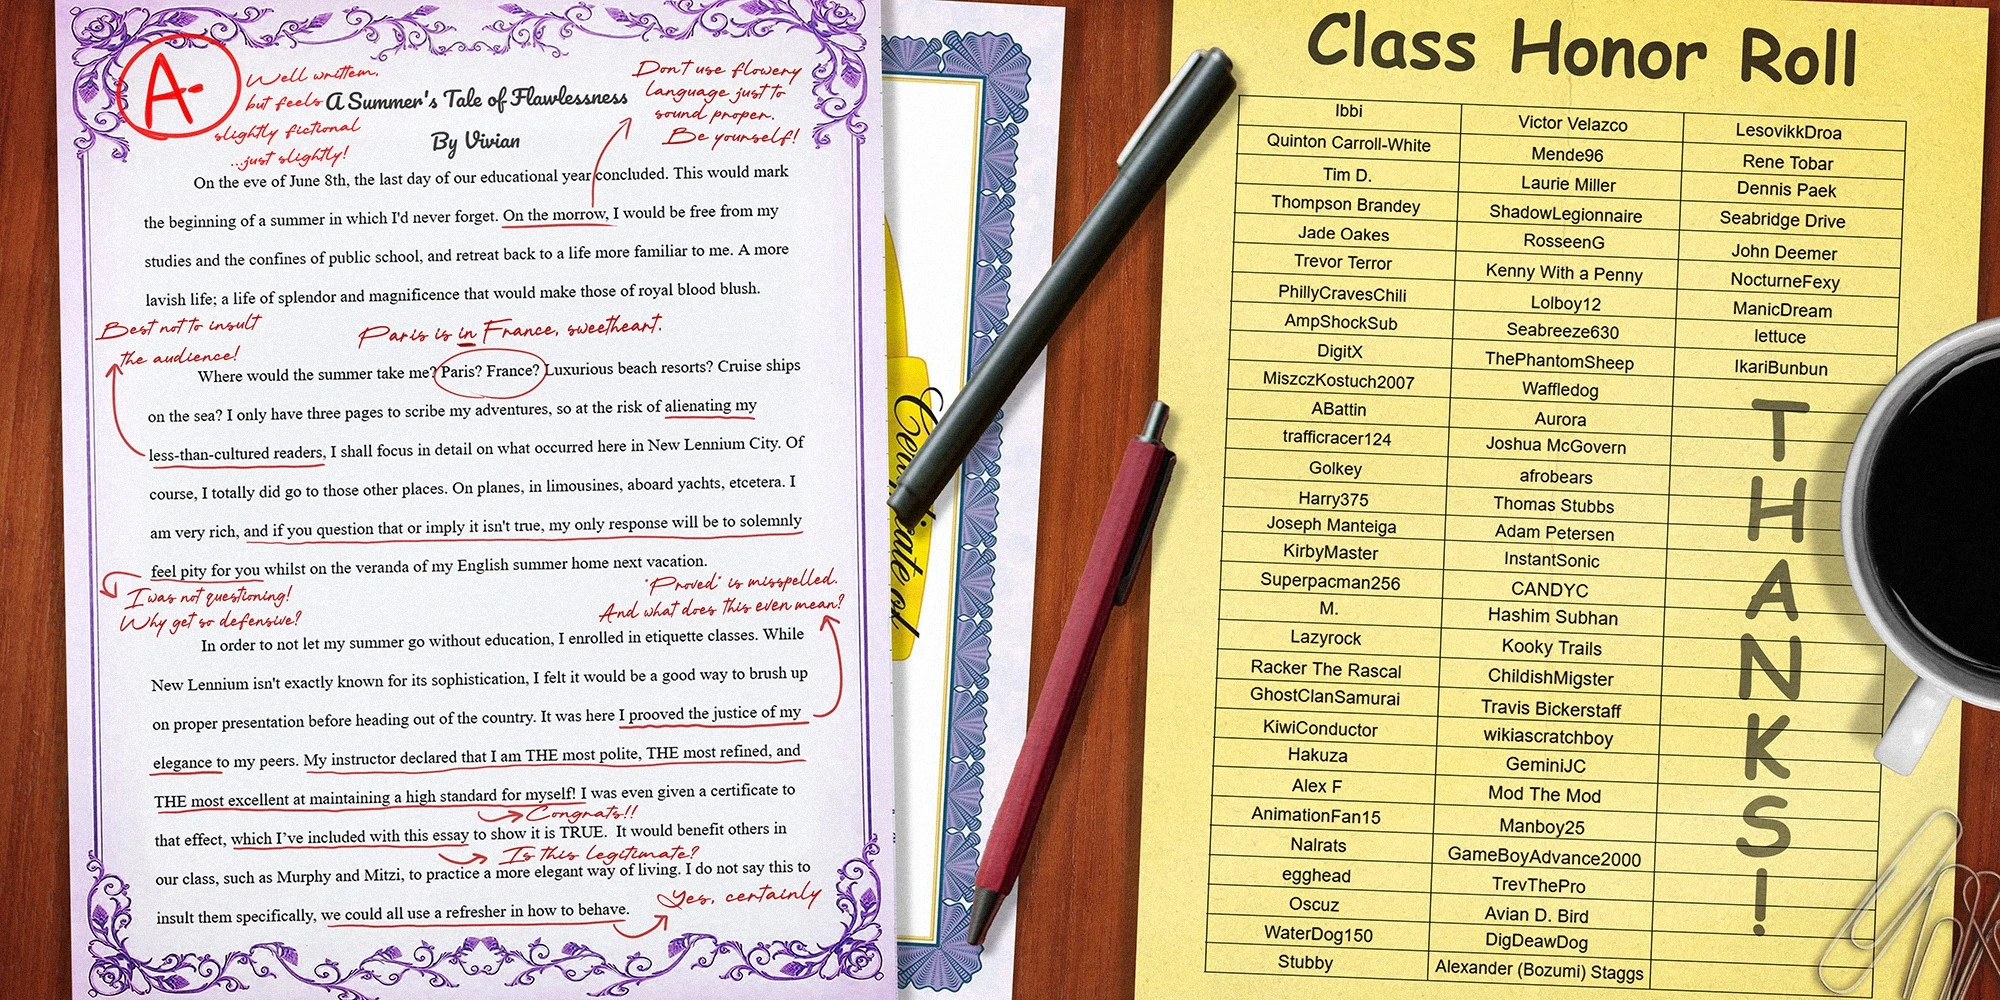 A-
Well written,
but feels
slightly fictional
...just slightly!
A Summer's Tale of Flawlessness
By Vivian
Don't use flowery
language just to
sound proper.
Be yourself!
On the eve of June 8th, the last day of our educational year concluded. This would mark
the beginning of a summer in which I'd never forget. On the morrow, I would be free from my
studies and the confines of public school, and retreat back to a life more familiar to me. A more
lavish life; a life of splendor and magnificence that would make those of royal blood blush.
Best not to insult
the audience!
Paris is in France, sweetheart.
Where would the summer take me? Paris? France? Luxurious beach resorts? Cruise ships
on the sea? I only have three pages to scribe my adventures, so at the risk of alienating my
less-than-cultured readers, I shall focus in detail on what occurred here in New Lennium City. Of
course, I totally did go to those other places. On planes, in limousines, aboard yachts, etcetera. I
am very rich, and if you question that or imply it isn't true, my only response will be to solemnly
feel pity for you whilst on the veranda of my English summer home next vacation.
I was not questioning!
Why get so defensive?
"Proved" is misspelled.
And what does this even mean?
In order to not let my summer go without education, I enrolled in etiquette classes. While
New Lennium isn't exactly known for its sophistication, I felt it would be a good way to brush up
on proper presentation before heading out of the country. It was here I prooved the justice of my
elegance to my peers. My instructor declared that I am THE most polite, THE most refined, and
THE most excellent at maintaining a high standard for myself! I was even given a certificate to
Congrats!!
that effect, which I've included with this essay to show it is TRUE. It would benefit others in
Is this legitimate?
our class, such as Murphy and Mitzi, to practice a more elegant way of living. I do not say this to
insult them specifically, we could all use a refresher in how to behave.
Yes, certainly
Class Honor Roll
Ibbi
Quinton Carroll-White
Tim D.
Thompson Brandey
Jade Oakes
Trevor Terror
PhillyCravesChili
AmpShockSub
DigitX
MiszczKostuch2007
ABattin
trafficracer124
Golkey
Harry375
Joseph Manteiga
KirbyMaster
Superpacman256
M.
Lazyrock
Racker The Rascal
GhostClanSamurai
KiwiConductor
Hakuza
Alex F
AnimationFan15
Nalrats
egghead
Oscuz
WaterDog150
Stubby
Victor Velazco
Mende96
Laurie Miller
ShadowLegionnaire
RosseenG
Kenny With a Penny
Lolboy12
Seabreeze630
ThePhantomSheep
Waffledog
Aurora
Joshua McGovern
afrobears
Thomas Stubbs
Adam Petersen
InstantSonic
CANDYC
Hashim Subhan
Kooky Trails
ChildishMigster
Travis Bickerstaff
wikiascratchboy
GeminiJC
Mod The Mod
Manboy25
GameBoyAdvance2000
TrevThePro
Avian D. Bird
DigDeawDog
Alexander (Bozumi) Staggs
LesovikkDroa
Rene Tobar
Dennis Paek
Seabridge Drive
John Deemer
NocturneFexy
ManicDream
lettuce
IkariBunbun
THANKS!